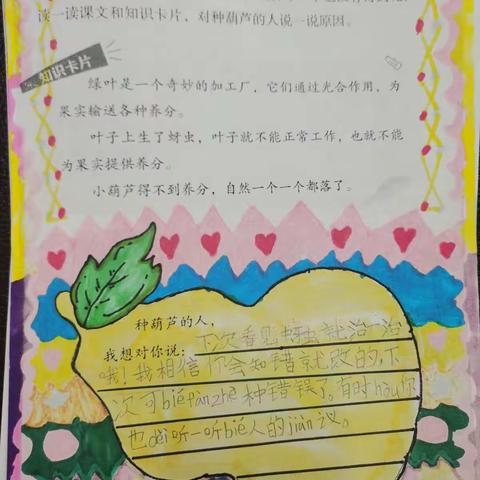 读一读课文和知识卡片，对种葫芦的人说一说原因。
知识卡片
绿叶是一个奇妙的加工厂，它们通过光合作用，为
果实输送各种养分。
叶子上生了蚜虫，叶子就不能正常工作，也就不能
为果实提供养分。
小葫芦得不到养分，自然一个一个都落了。
种葫芦的人，
我想对你说：下次看见蚜虫就治一治
哦！我相信你会知错就改的，下
次可bié fàn zhè种错误了。有时hòu你
也děi听一听bié人的jiàn议。